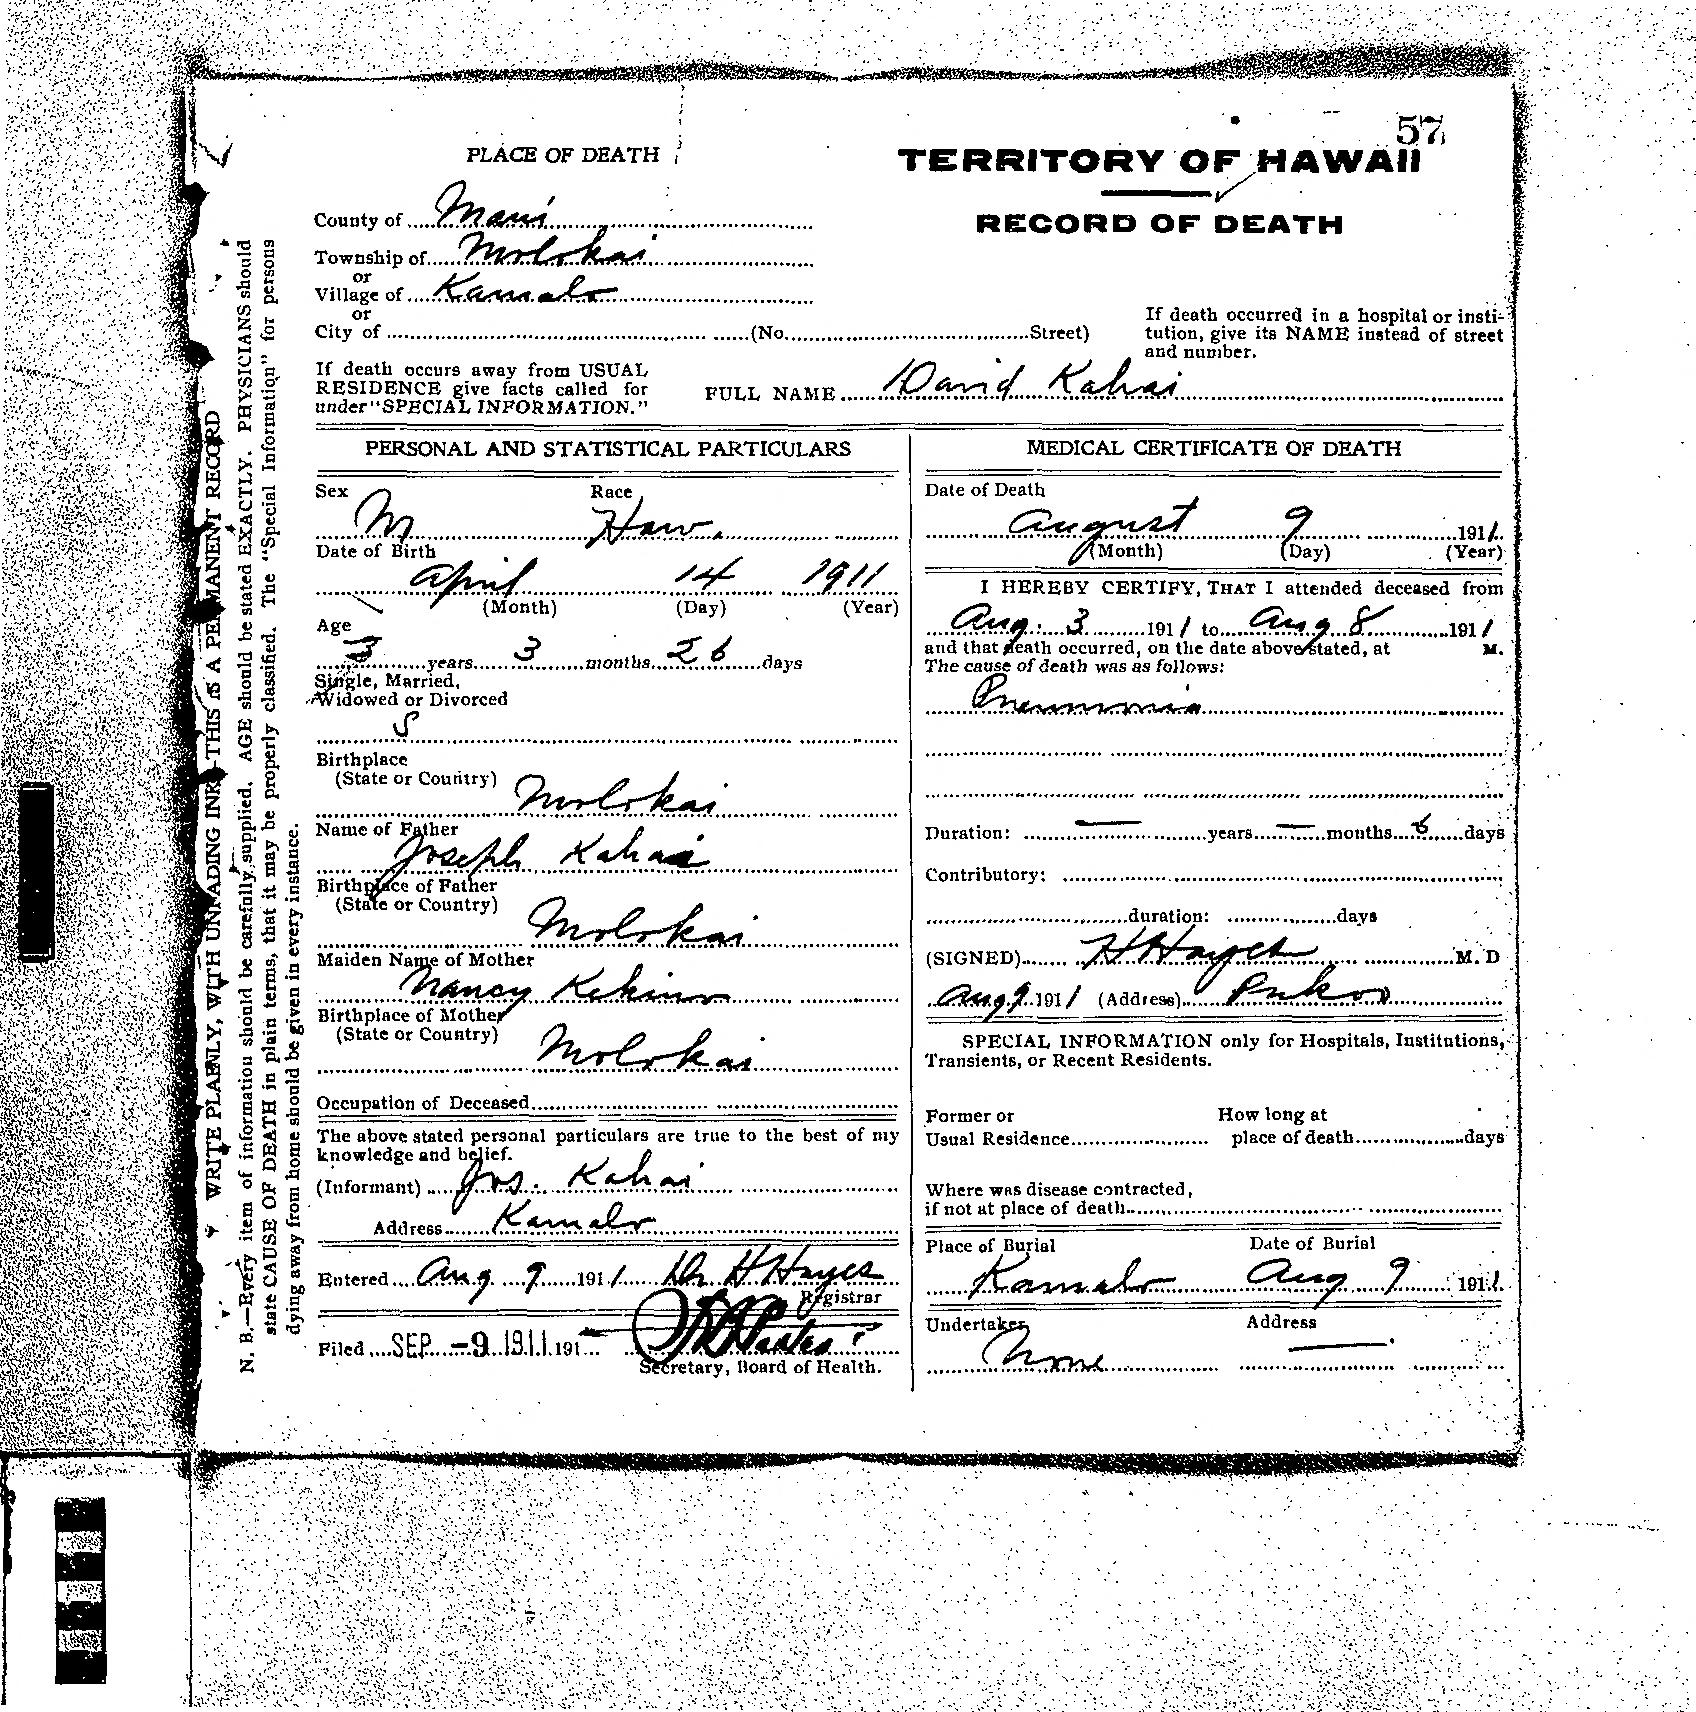 57
PLACE OF DEATH
TERRITORY OF HAWAII
RECORD OF DEATH
County of Maui
Township of Molokai
or
Village of Kamalo
or
City of (No. Street)
If death occurred in a hospital or insti-
tution, give its NAME instead of street
and number.
If death occurs away from USUAL
RESIDENCE give facts called for
under "SPECIAL INFORMATION."
FULL NAME David Kahai
PERSONAL AND STATISTICAL PARTICULARS
Sex Race
M Haw.
Date of Birth
April 14 1911
(Month) (Day) (Year)
Age
3 years 3 months 26 days
Single, Married,
Widowed or Divorced
S
Birthplace
(State or Country)
Molokai
Name of Father
Joseph Kahai
Birthplace of Father
(State or Country)
Molokai
Maiden Name of Mother
Nancy Kekino
Birthplace of Mother
(State or Country)
Molokai
Occupation of Deceased
The above stated personal particulars are true to the best of my
knowledge and belief.
(Informant) Jos. Kahai
Address Kamalo
Entered Aug 9 1911 Dr H Hayes
Registrar
Filed SEP -9 1911 191
Secretary, Board of Health.
MEDICAL CERTIFICATE OF DEATH
Date of Death
August 9 1911
(Month) (Day) (Year)
I HEREBY CERTIFY, THAT I attended deceased from
Aug. 3 1911 to Aug 8 1911
and that death occurred, on the date above stated, at M.
The cause of death was as follows:
Pneumonia
Duration: — years — months 6 days
Contributory:
duration: days
(SIGNED) H Hayes M. D
Aug 9 1911 (Address) Pukoo
SPECIAL INFORMATION only for Hospitals, Institutions,
Transients, or Recent Residents.
Former or How long at
Usual Residence place of death days
Where was disease contracted,
if not at place of death
Place of Burial Date of Burial
Kamalo Aug 9 1911
Undertaker Address
None —
WRITE PLAINLY, WITH UNFADING INK—THIS IS A PERMANENT RECORD
N. B.—Every item of information should be carefully supplied. AGE should be stated EXACTLY. PHYSICIANS should
state CAUSE OF DEATH in plain terms, that it may be properly classified. The "Special Information" for persons
dying away from home should be given in every instance.